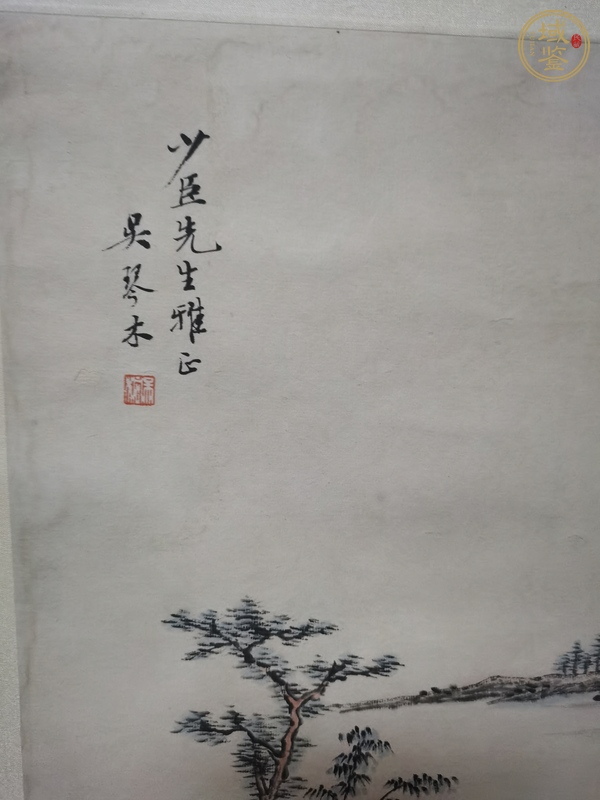 少臣先生雅正
吴琴木
域鉴